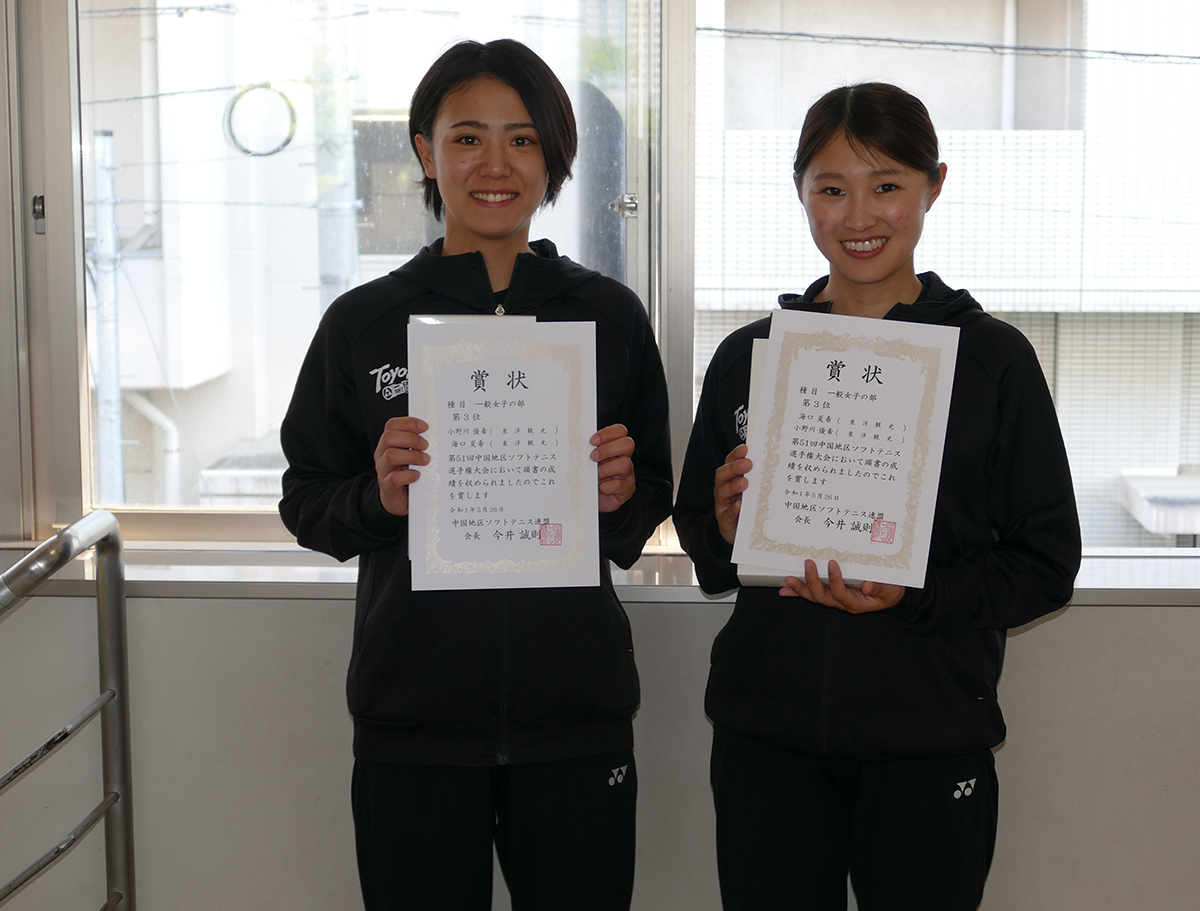 賞状
種目 一般女子の部
第3位
小野川 優希( 東洋観光 )
海口 夏希( 東洋観光 )
第51回中国地区ソフトテニス
選手権大会において頭書の成
績を収められましたのでこれ
を賞します
令和1年5月26日
中国地区ソフトテニス連盟
会長 今井 誠則
賞状
種目 一般女子の部
第3位
海口 夏希( 東洋観光 )
小野川 優希( 東洋観光 )
第51回中国地区ソフトテニス
選手権大会において頭書の成
績を収められましたのでこれ
を賞します
令和1年5月26日
中国地区ソフトテニス連盟
会長 今井 誠則